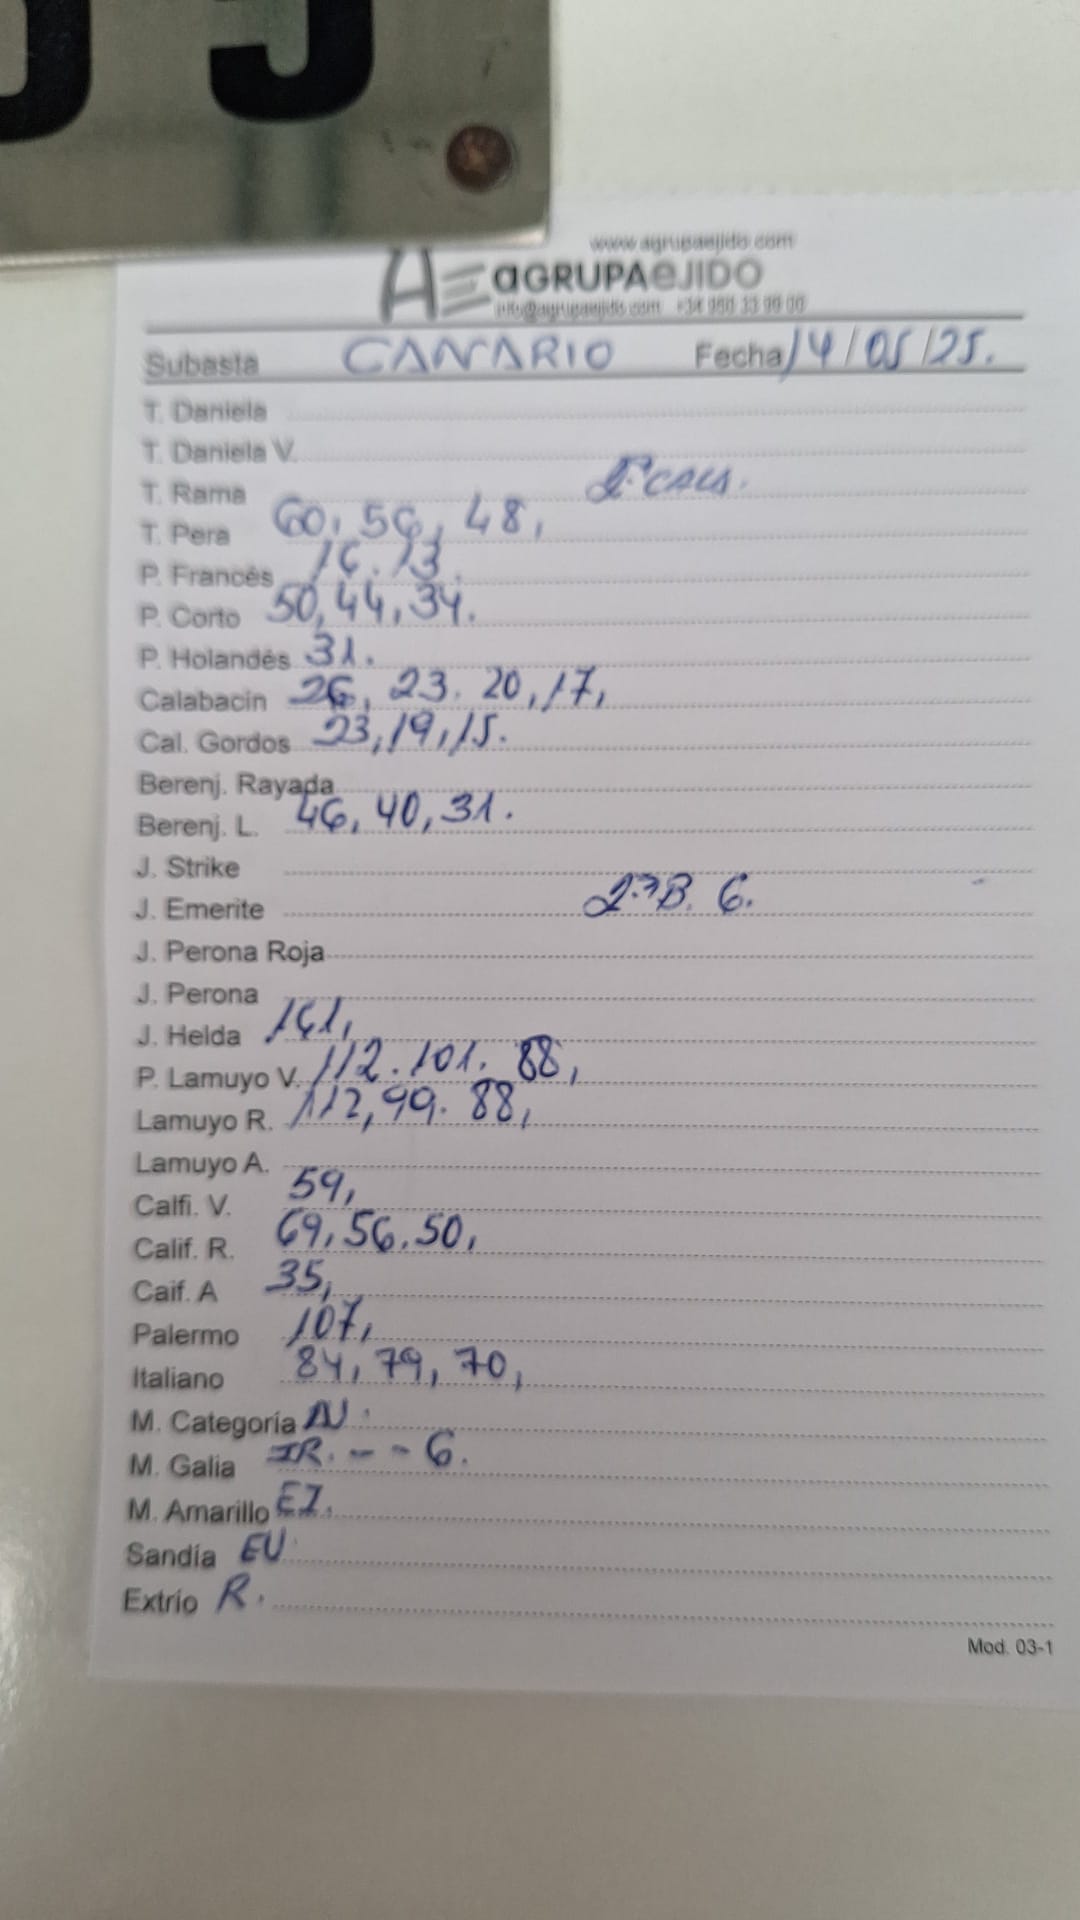 www.agrupaejido.com
AE aGRUPAeJIDO
info@agrupaejido.com +34 950 33 99 00
Subasta CANARIO Fecha 14/05/25.
T. Daniela
T. Daniela V.
T. Rama 2ª CALA.
T. Pera 60, 56, 48,
P. Francés 16. 13.
P. Corto 50, 44, 34.
P. Holandés 31.
Calabacin 26, 23. 20, 17,
Cal. Gordos 23, 19, 15.
Berenj. Rayada
Berenj. L. 46, 40, 31.
J. Strike
J. Emerite 2ª B. 6.
J. Perona Roja
J. Perona
J. Helda 161,
P. Lamuyo V. 112. 101. 88,
Lamuyo R. 112, 99. 88,
Lamuyo A.
Calfi. V. 59,
Calif. R. 69, 56. 50,
Caif. A 35,
Palermo 107,
Italiano 84, 79, 70,
M. Categoría
M. Galia - - 6.
M. Amarillo
Sandía EU
Extrio R.
Mod. 03-1